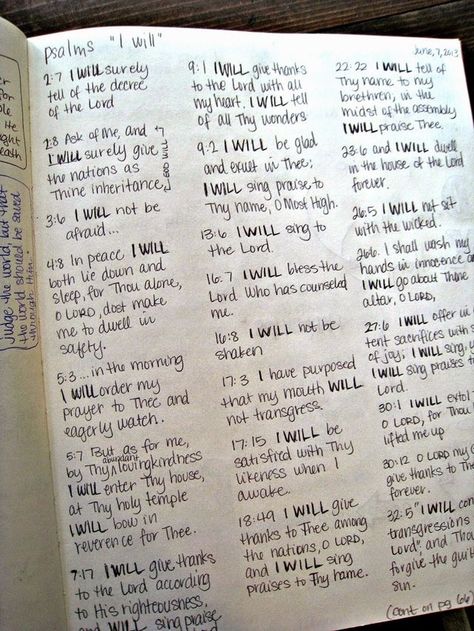 er
for
ple
He
ght
eath
judge the world, but that
the world should be saved
through Him."
psalms "I will"
June, 7, 2013
2:7 I WILL surely
tell of the decree
of the Lord
2:8 Ask of me, and
I WILL surely give
the nations as
Thine inheritance,
GOD WILL
3:6 I WILL not be
afraid...
4:8 In peace I WILL
both lie down and
sleep, for Thou alone,
O LORD, dost make
me to dwell in
safety.
5:3 ...in the morning
I WILL order my
prayer to Thee and
eagerly watch.
5:7 But as for me,
abundant
by Thy lovingkindness
I WILL enter Thy house,
at Thy holy temple
I WILL bow in
reverence for Thee.
7:17 I WILL give thanks
to the Lord according
to His righteousness,
and I WILL sing praise
9:1 I WILL give thanks
to the Lord with all
my heart. I WILL tell
of all Thy wonders
9:2 I WILL be glad
and exult in Thee;
I WILL sing praise to
Thy name, O Most High.
13:6 I WILL sing to
the Lord.
16:7 I WILL bless the
Lord who has counseled
me.
16:8 I WILL not be
shaken
17:3 I have purposed
that my mouth WILL
not transgress.
17:15 I WILL be
satisfied with Thy
likeness when I
awake.
18:49 I WILL give
thanks to Thee among
the nations, O LORD,
and I WILL sing
praises to Thy name.
22:22 I WILL tell of
Thy name to my
brethren; in the
midst of the assembly
I WILL praise Thee.
23:6 and I WILL dwell
in the house of the Lord
forever.
26:5 I WILL not sit
with the wicked.
26:6 I shall wash my
hands in innocence an
I WILL go about Thine
altar, O LORD,
27:6 I WILL offer in H
tent sacrifices with s
of joy; I WILL sing, y
I WILL sing praises to
Lord.
30:1 I WILL extol
O LORD, for Thou
lifted me up
30:12 O LORD my G
give thanks to Thee
forever.
32:5 "I WILL con
transgressions
Lord"; and Thou
forgive the guil
sin.
(cont on pg 66)